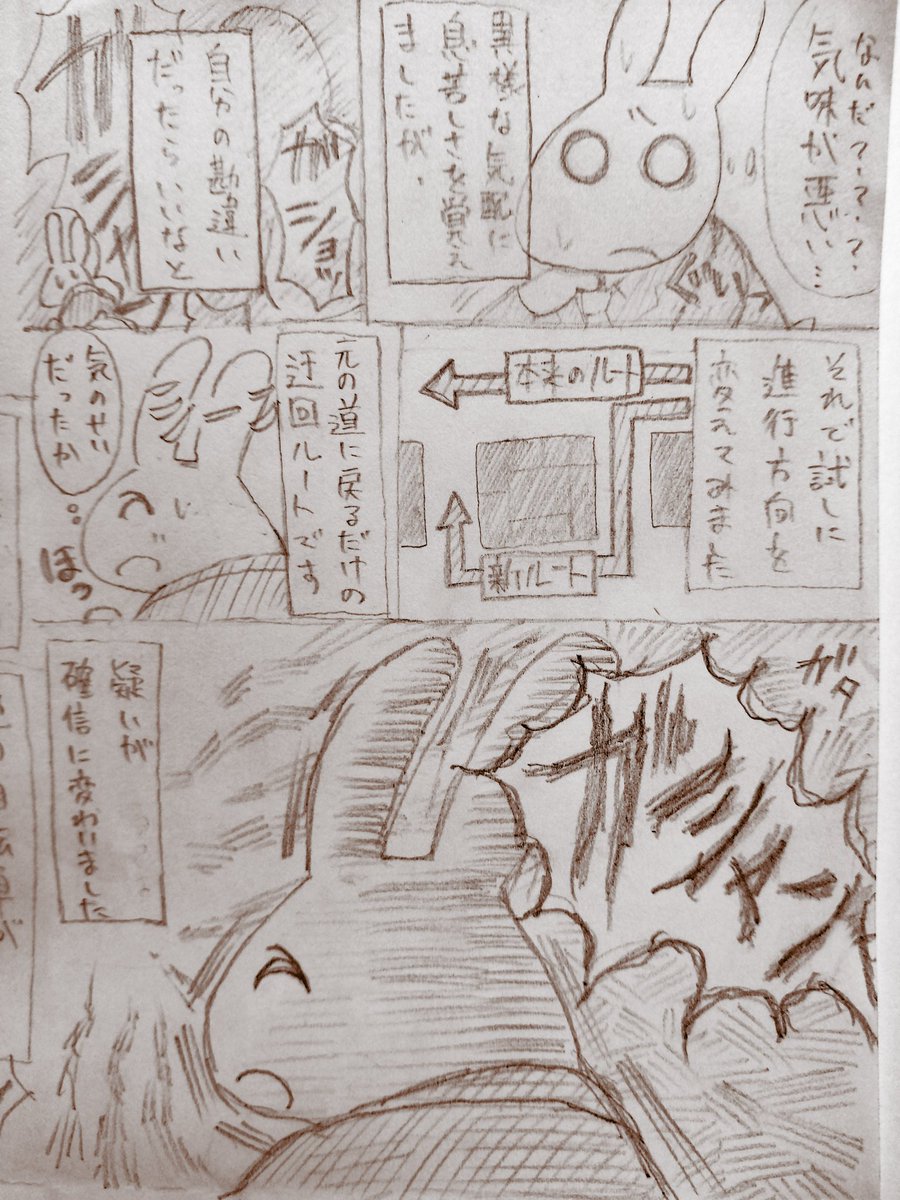 なんだ？
気味が悪い…
異様な気配に
息苦しさを覚え
ましたが、
ぐいっ
ガショッ
自分の勘違い
だったらいいなと
それで試しに
進行方向を
変えてみました
本来のルート
新ルート
元の道に戻るだけの
迂回ルートです
気のせい
だったか
ほっ
ガタ
ガシャーン
疑いが
確信に変わりました